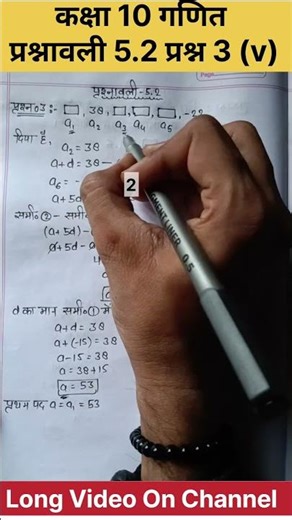 कक्षा 10 गणित
प्रश्नावली 5.2 प्रश्न 3 (v)
Page
प्रश्नावली-5.2
प्रश्न03:- □, 38, □, □, □, -22
a₁ a₂ a₃ a₄ a₅
दिया है,
a₂ = 38
a+d = 38
a₆ = -
a+5d
2
0.5
समी०② - समी०
(a+5d) -
a+5d - a
d का मान समी०① में
a+d = 38
a+(-15) = 38
a-15 = 38
a = 38+15
a = 53
प्रथम पद a = a₁ = 53
Long Video On Channel